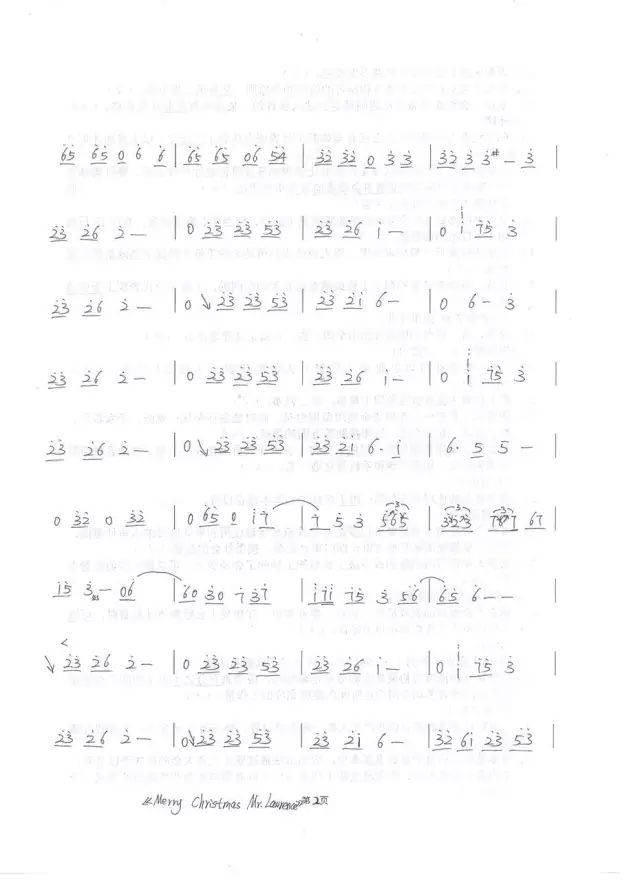 6̇5̇ 6̇5̇ 0 6̇ 6̇ | 6̇5̇ 6̇5̇ 0̇6̇ 5̇4̇ | 3̇2̇ 3̇2̇ 0 3̇ 3̇ | 3̇2̇ 3̇ 3̇# — 3̇ |
2̇3̇ 2̇6 2̇ — | 0 2̇3̇ 2̇3̇ 5̇3̇ | 2̇3̇ 2̇6 1̇ — | 0 1̇ 75 3̇ |
2̇3̇ 2̇6 2̇ — | 0 2̇3̇ 2̇3̇ 5̇3̇ | 2̇3̇ 2̇1̇ 6 — | 0 6 - 3̇ |
2̇3̇ 2̇6 2̇ — | 0 2̇3̇ 2̇3̇ 5̇3̇ | 2̇3̇ 2̇6 1̇ — | 0 1̇ 75 3̇ |
2̇3̇ 2̇6 2̇ — | 0 2̇3̇ 2̇3̇ 5̇3̇ | 2̇3̇ 2̇1̇ 6· 1̇ | 6· 5 5 — |
0 3̇2̇ 0 3̇2̇ | 0 6̇5̇ 0 1̇7 | 7 5̇ 3̇ 5̇6̇5̇ | 3̇2̇3̇ 67 |
1̇5 3 — 06 | 60 30 737 | 1̇71̇ 75 3 56 | 65 6 — — |
2̇3̇ 2̇6 2̇ — | 0 2̇3̇ 2̇3̇ 5̇3̇ | 2̇3̇ 2̇6 1̇ — | 0 1̇ 75 3̇ |
2̇3̇ 2̇6 2̇ — | 0 2̇3̇ 2̇3̇ 5̇3̇ | 2̇3̇ 2̇1̇ 6 — | 3̇2̇ 61̇ 2̇3̇ 5̇3̇ |
《Merry Christmas Mr. Lawrence》第2页